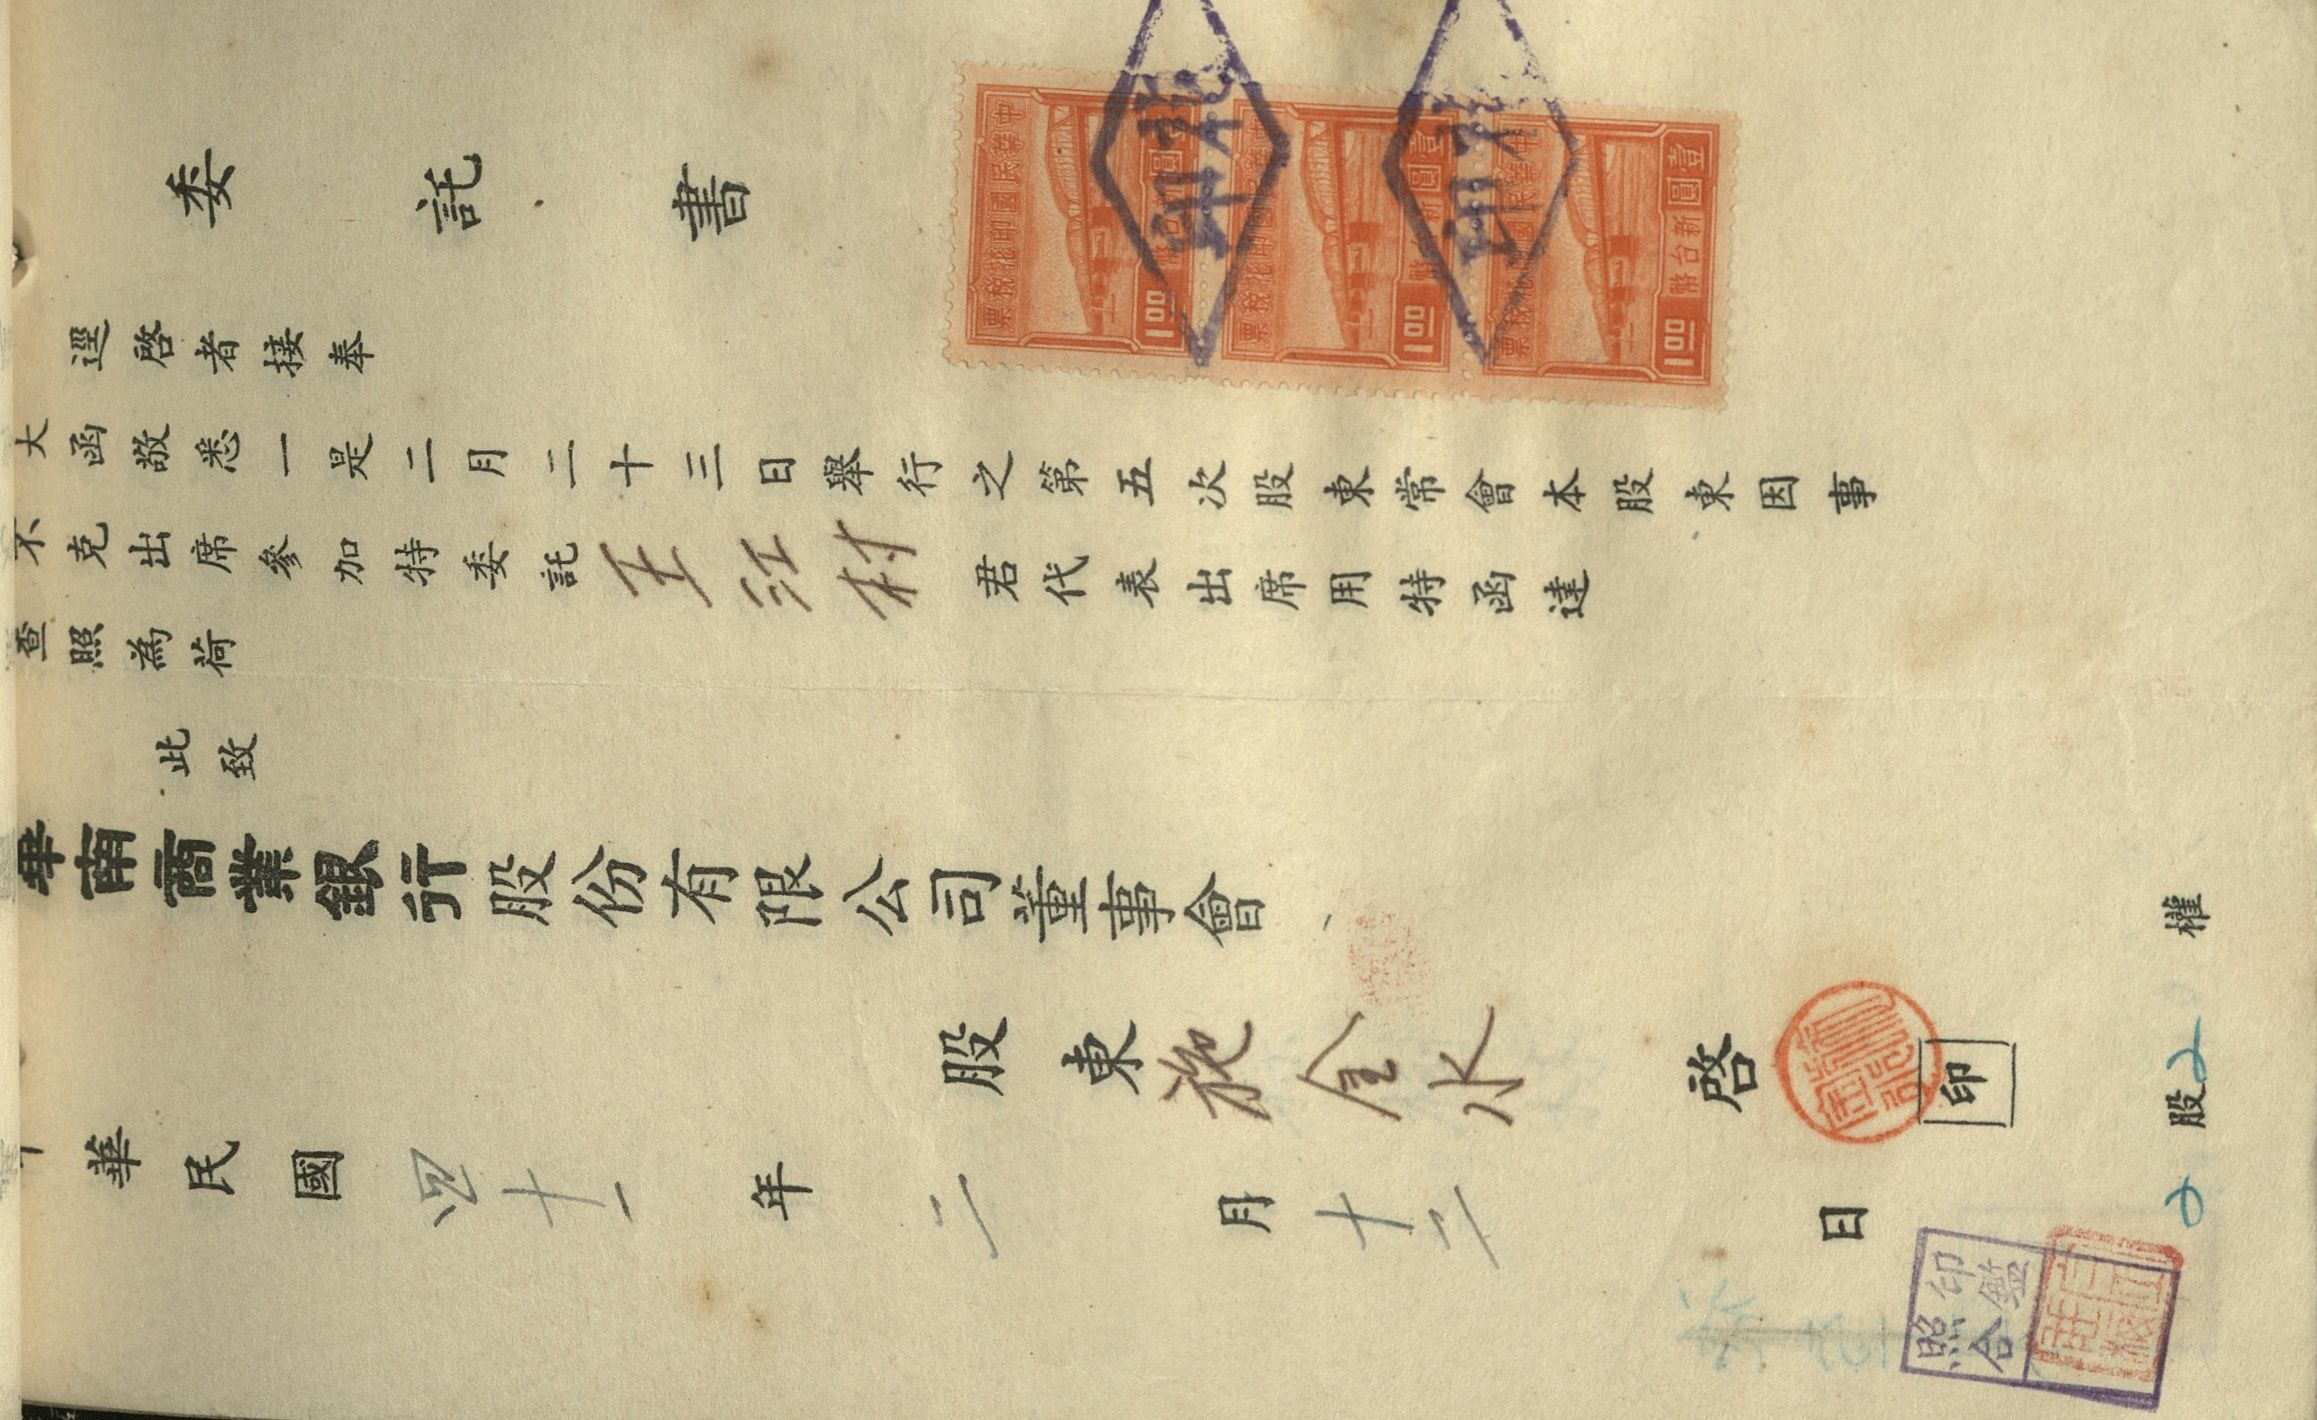 委託書
逕啓者接奉
大函敬悉一是二月二十三日舉行之第五次股東常會本股東因事
不克出席參加特委託王江村君代表出席用特函達
查照為荷
此致
華南商業銀行股份有限公司董事會
股東施金水啓
印
中華民國四十一年二月十二日
股2權
中華民國印花稅票
壹圓
新台幣
1.00
中華民國印花稅票
壹圓
新台幣
1.00
中華民國印花稅票
壹圓
新台幣
1.00
印鑑
照合